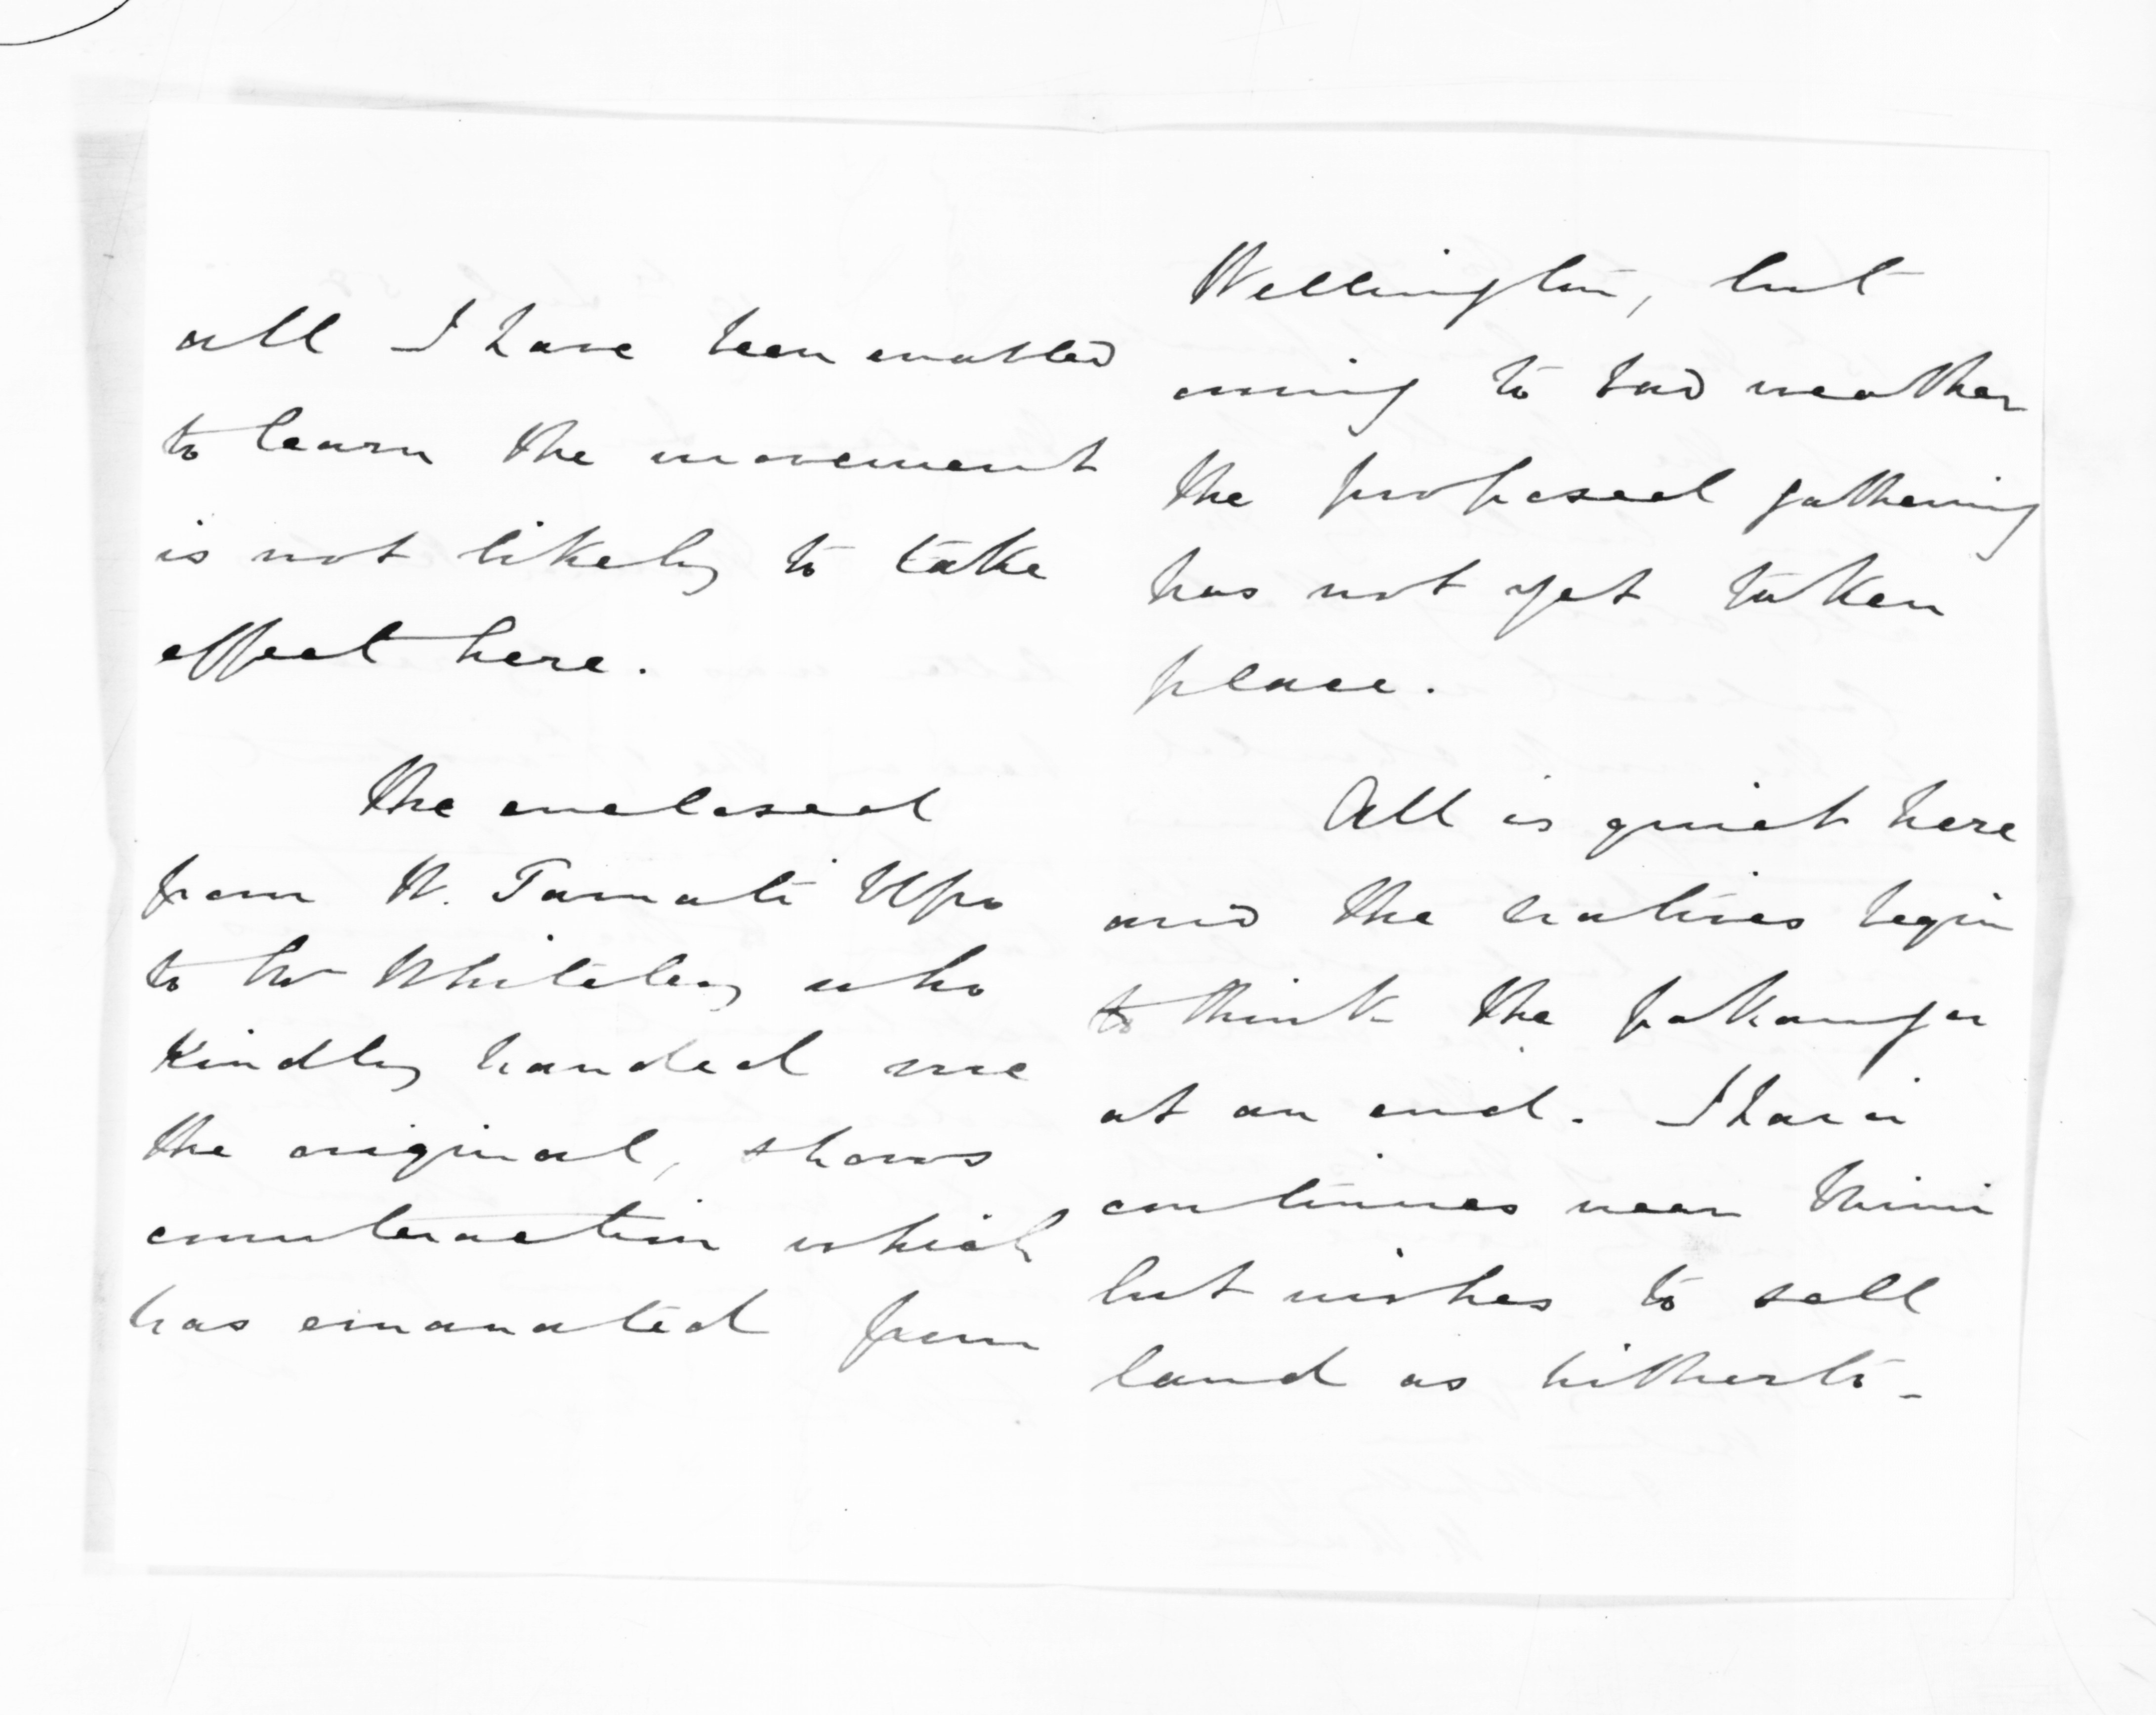 all I have been enabled
to learn the movement
is not likely to take
effect here.
The enclosed
from W. Tamati Ngapo
to Mr Whiteley who
kindly handed me
the original, shows
counteraction which
has emanated from
Wellington, but
owing to bad weather
the proposed gathering
has not yet taken
place.
All is quiet here
and the natives begin
to think the pakanga
at an end. Ihaia
continues near Mimi
but wishes to sell
land as hitherto -